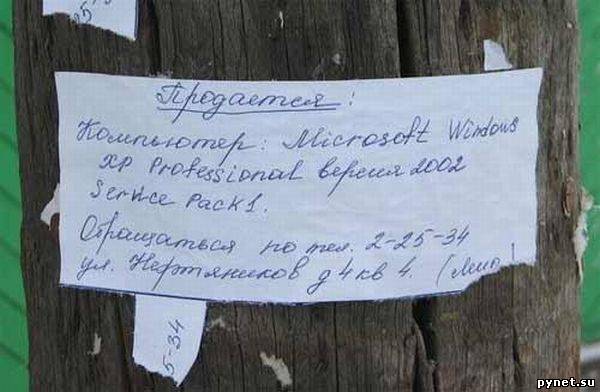 25-
Продается:
Компьютер: Microsoft Windows
XP Professional версия 2002
Service Pack 1.
Обращаться по тел. 2-25-34
ул. Нефтяников д 4 кв 4.
5-34
pynet.su